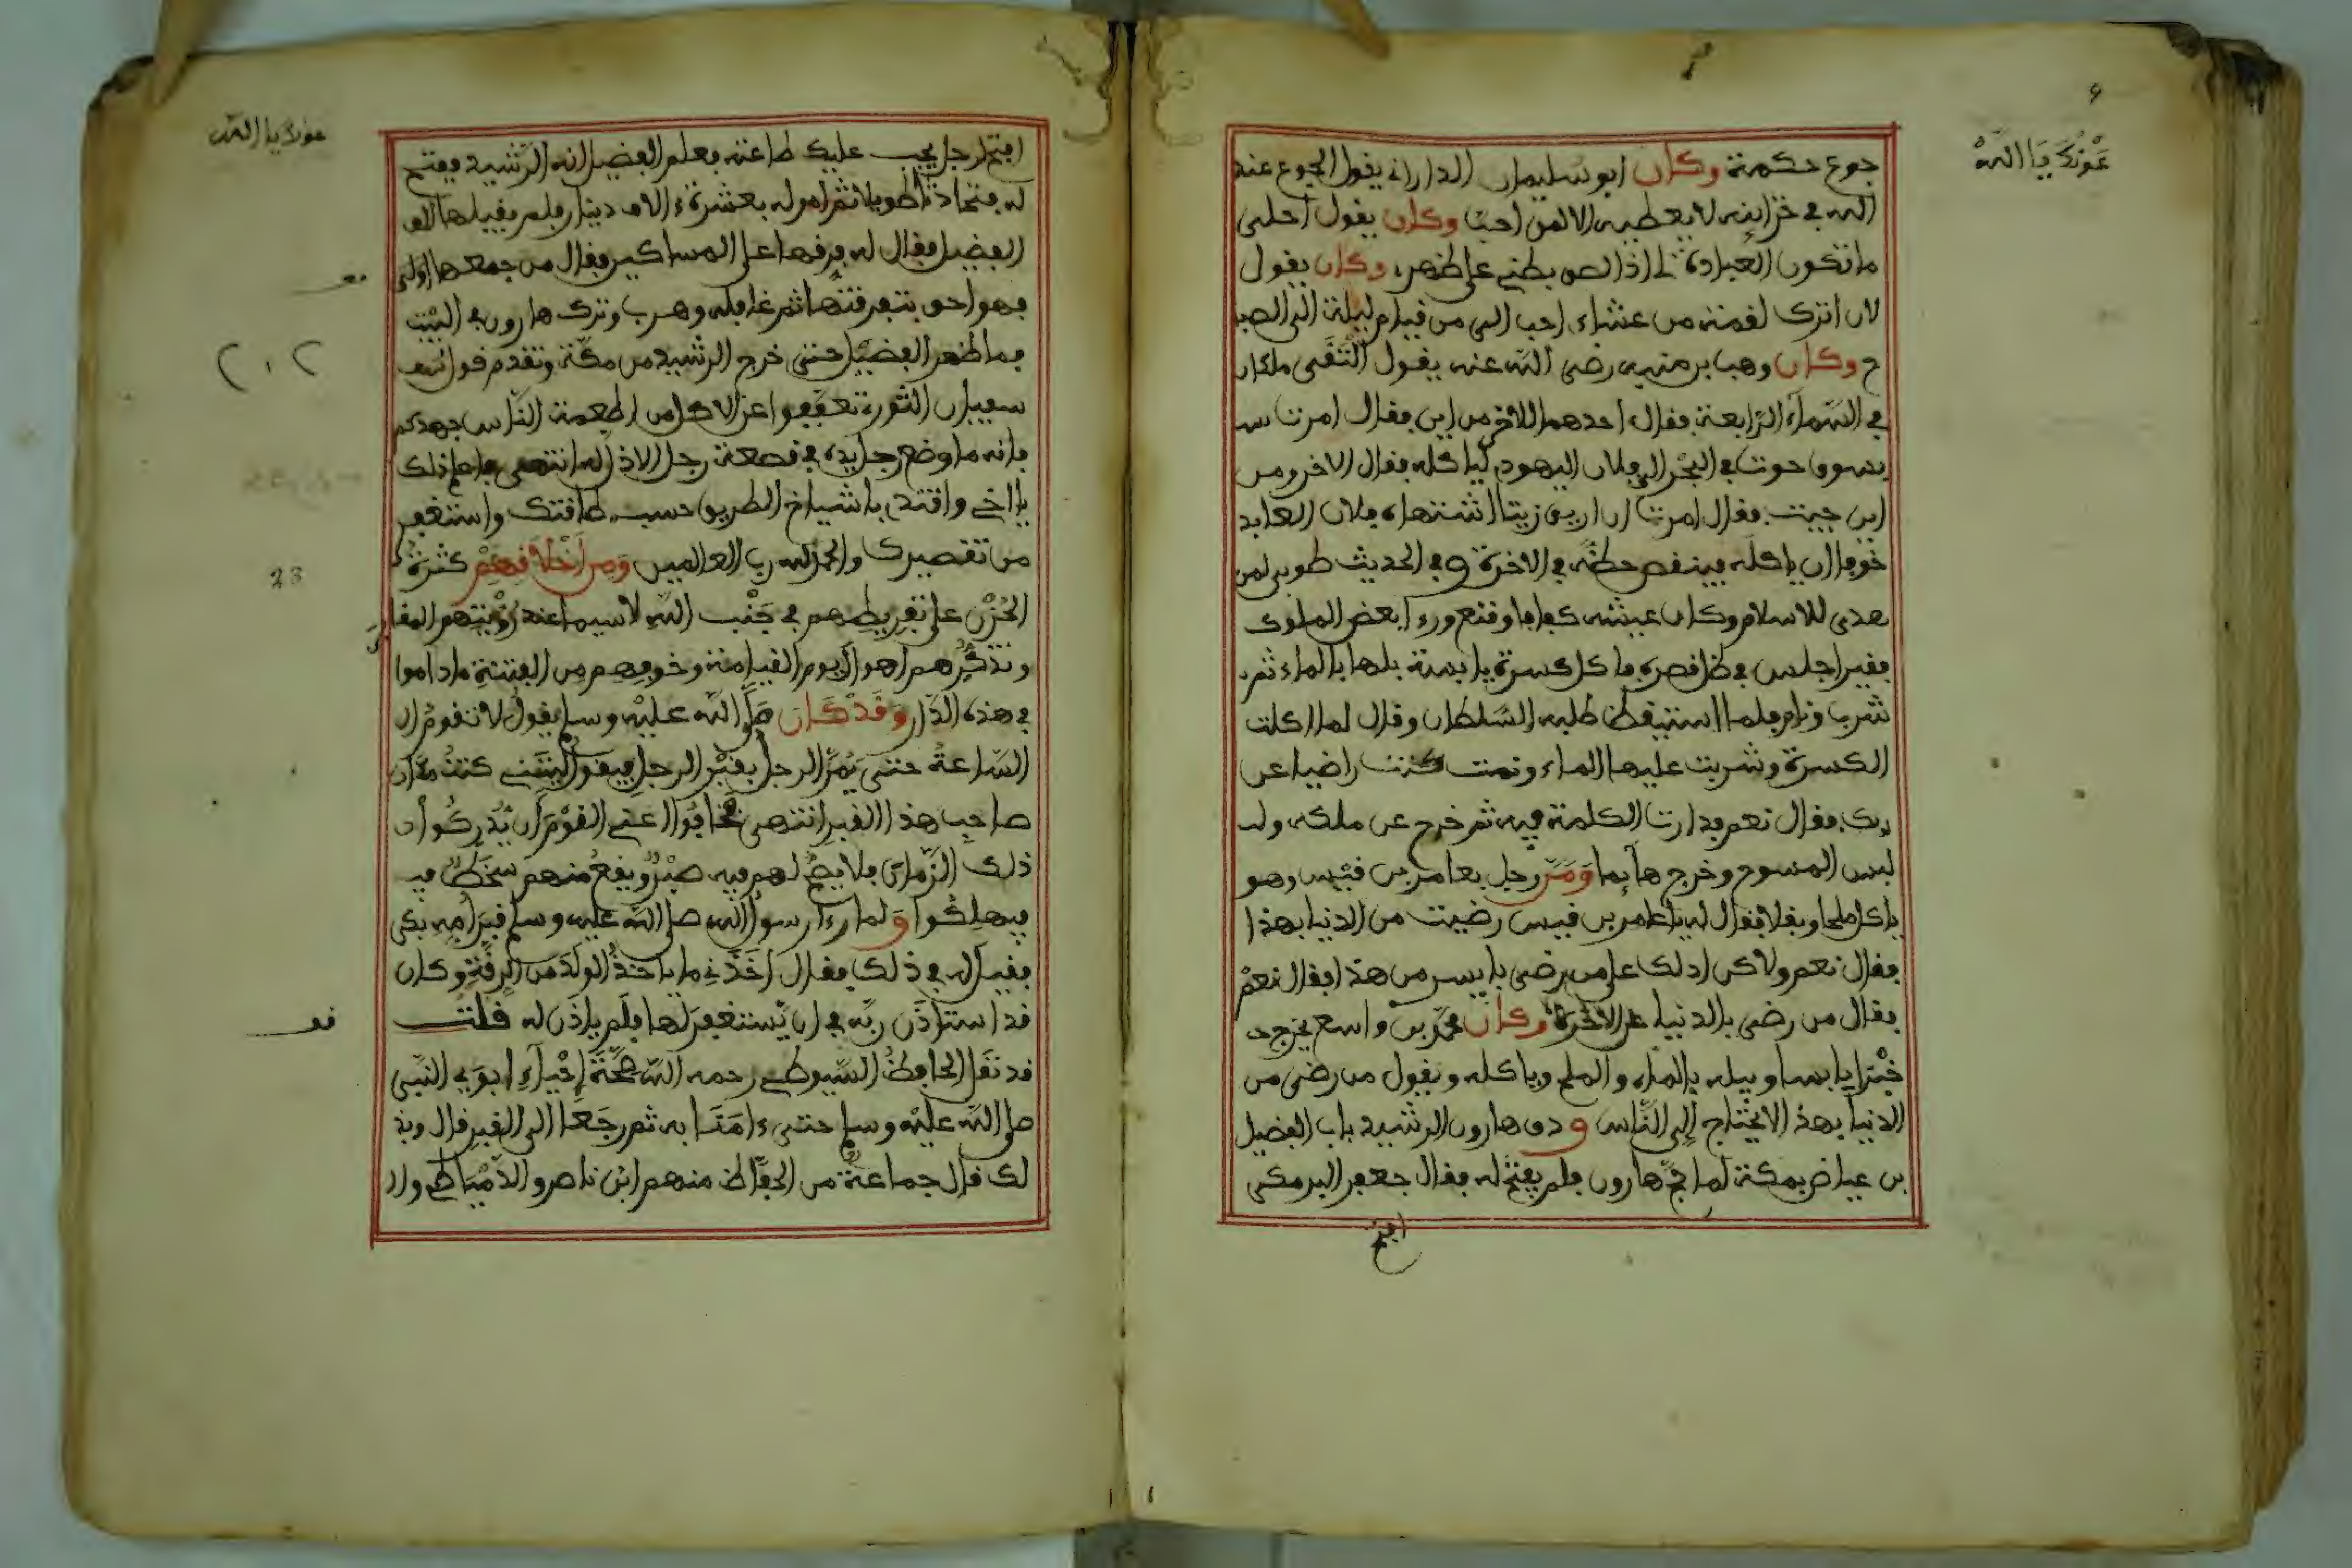 عونك يا الله
جوع حكمة وكان ابو سليمان الداراني يقول الجوع عند
الله في خزاينه لا يعطيه الا لمن احب وكان يقول احلى
ما تكون العبادة لي اذا لصق بطني على ظهري وكان يقول
لان اترك لقمة من عشاءي احب الي من قيام ليلة الى الصبا
ح وكان وهب بن منبه رضي الله عنه يقول التقى ملكان
في السماء الرابعة فقال احدهما للاخر من اين فقال امرت
بسوق حوت في البحر الى فلان اليهودي لياكله فقال الاخر ومن
اين جيت فقال امرت ان اريق زيتا اشتهاه فلان العابد
خوفا ان ياكله فينقص حظه في الاخرة وفي الحديث طوبى لمن
هدى للاسلام وكان عيشه كفافا وقنع ورءا بعض الملوك
فقيرا جلس في ظل قصره فاكل كسرة يابسة بلها بالماء ثم
شرب ونام فلما استيقظ طلبه السلطان وقال لما اكلت
الكسرة وشربت عليها الماء ونمت كنت راضيا عن
ربك فقال نعم فدارت الكلمة فيه ثم خرج عن ملكه ول
لبس المسوح وخرج هآيما ومر رجل بعامر بن قيس وهو
ياكل ملحا وبقلا فقال له يا عامر بن قيس رضيت من الدنيا بهذا
فقال نعم ولاكن ادلك على من رضي بايسر من هذا فقال نعم
فقال من رضي بالدنيا على الاخرة وكان محمد بن واسع يخرج
خبزا يابسا ويبله بالماء والملح وياكله ويقول من رضي من
الدنيا بهذا لا يحتاج الى الناس ودق هارون الرشيد باب الفضيل
بن عياض بمكة لما حج هارون فلم يفتح له فقال جعفر البرمكي
افتح
عونك يا الله
افتح لرجل يجب عليك طاعته فعلم الفضيل انه الرشيد ففتح
له فتحادثا طويلا ثم امر له بعشرة ءالاف دينار فلم يقبلها
الفضيل فقال له فرقها على المساكين فقال من جمعها اولى
فهو احق بتفرقتها ثم غافله وهرب وترك هارون في البيت
فما ظهر الفضيل حتى خرج الرشيد من مكة وتقدم قول
سفيان الثوري تعففوا عن الاكل من اطعمة الناس جهدكم
فانه ما وضع رجل يده في قصعة رجل الا ذل له انتهى فاعلم ذلك
يا اخي واقتد باشياخ الطريق حسب طاقتك واستغفر
من تقصيرك والحمد لله رب العالمين ومن اخلاقهم كثرة
الحزن على تفريطهم في جنب الله لاسيما عند رؤيتهم المقابر
وتذكرهم اهوال يوم القيامة وخوفهم من الفتنة ما داموا
في هذه الدار وقد كان صلى الله عليه وسلم يقول لا تقوم ال
الساعة حتى يمر الرجل بقبر الرجل فيقول ليتني كنت مكان
صاحب هذا القبر انتهى فخافوا اعني القوم ان يدركوا
ذلك الزمان فلا يصح لهم فيه صبر ويقع منهم سخط
فيهلكوا ولما رءا رسول الله صلى الله عليه وسلم قبر امه بكى
فقيل له في ذلك فقال اخذني ما ياخذ الولد من الرقة وكان
قد استاذن ربه في ان يستغفر لها فلم ياذن له قلت
قد نقل الحافظ السيوطي رحمه الله صحة إحياء ابوي النبي
صلى الله عليه وسلم حتى ءامنا به ثم رجعا الى القبر قال وبذ
لك قال جماعة من الحفاظ منهم ابن ناصر والدمياطي وال
23